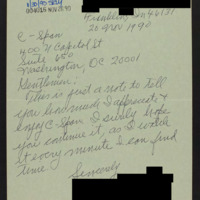 Franklin, IN 46131
20 Nov 1990
C-Span
400 N Capitol St
Suite 650
Washington, DC 20001
Gentlemen:
This is just a note to tell
you how much I appreciate &
enjoy C-Span. I surely hope
you continue it, as I watch
it every minute I can find
time.
Sincerely